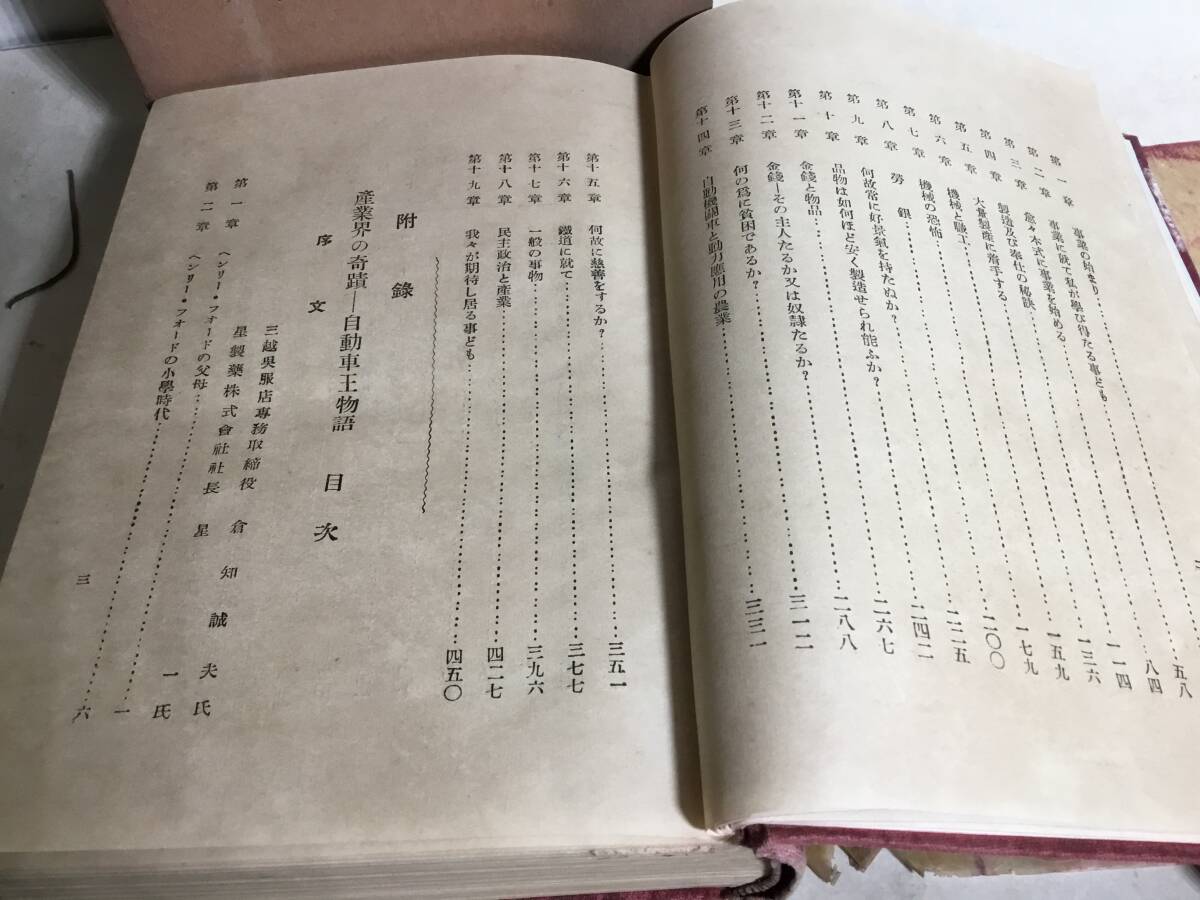 第一章 事業の始まり
第二章 事業に就て私が學び得たる事ども 五八
第三章 愈々本式に事業を始める 八四
第四章 製造及び奉仕の秘訣 一一四
第五章 大量製產に着手する 一三六
第六章 機械と職工 一五九
第七章 機械の恐怖 一七九
第八章 勞銀 二〇〇
第九章 何故常に好景氣を持たぬか? 二二五
第十章 品物は如何ほど安く製造せられ能ふか? 二四二
第十一章 金錢と物品 二六七
第十二章 金錢―その主人たるか又は奴隷たるか? 二八八
第十三章 何の爲に貧困であるか? 三一二
第十四章 自動機關車と動力應用の農業 三三二
第十五章 何故に慈善をするか? 三五一
第十六章 鐵道に就て 三七七
第十七章 一般の事物 三九六
第十八章 民主政治と產業 四二七
第十九章 我々が期待し居る事ども 四五〇
附錄
產業界の奇蹟―自動車王物語 目次
序文
三越吳服店專務取締役 倉知誠夫氏
星製藥株式會社社長 星一氏
第一章 ヘンリー・フォードの父母 一
第二章 ヘンリー・フォードの小學時代 六
三